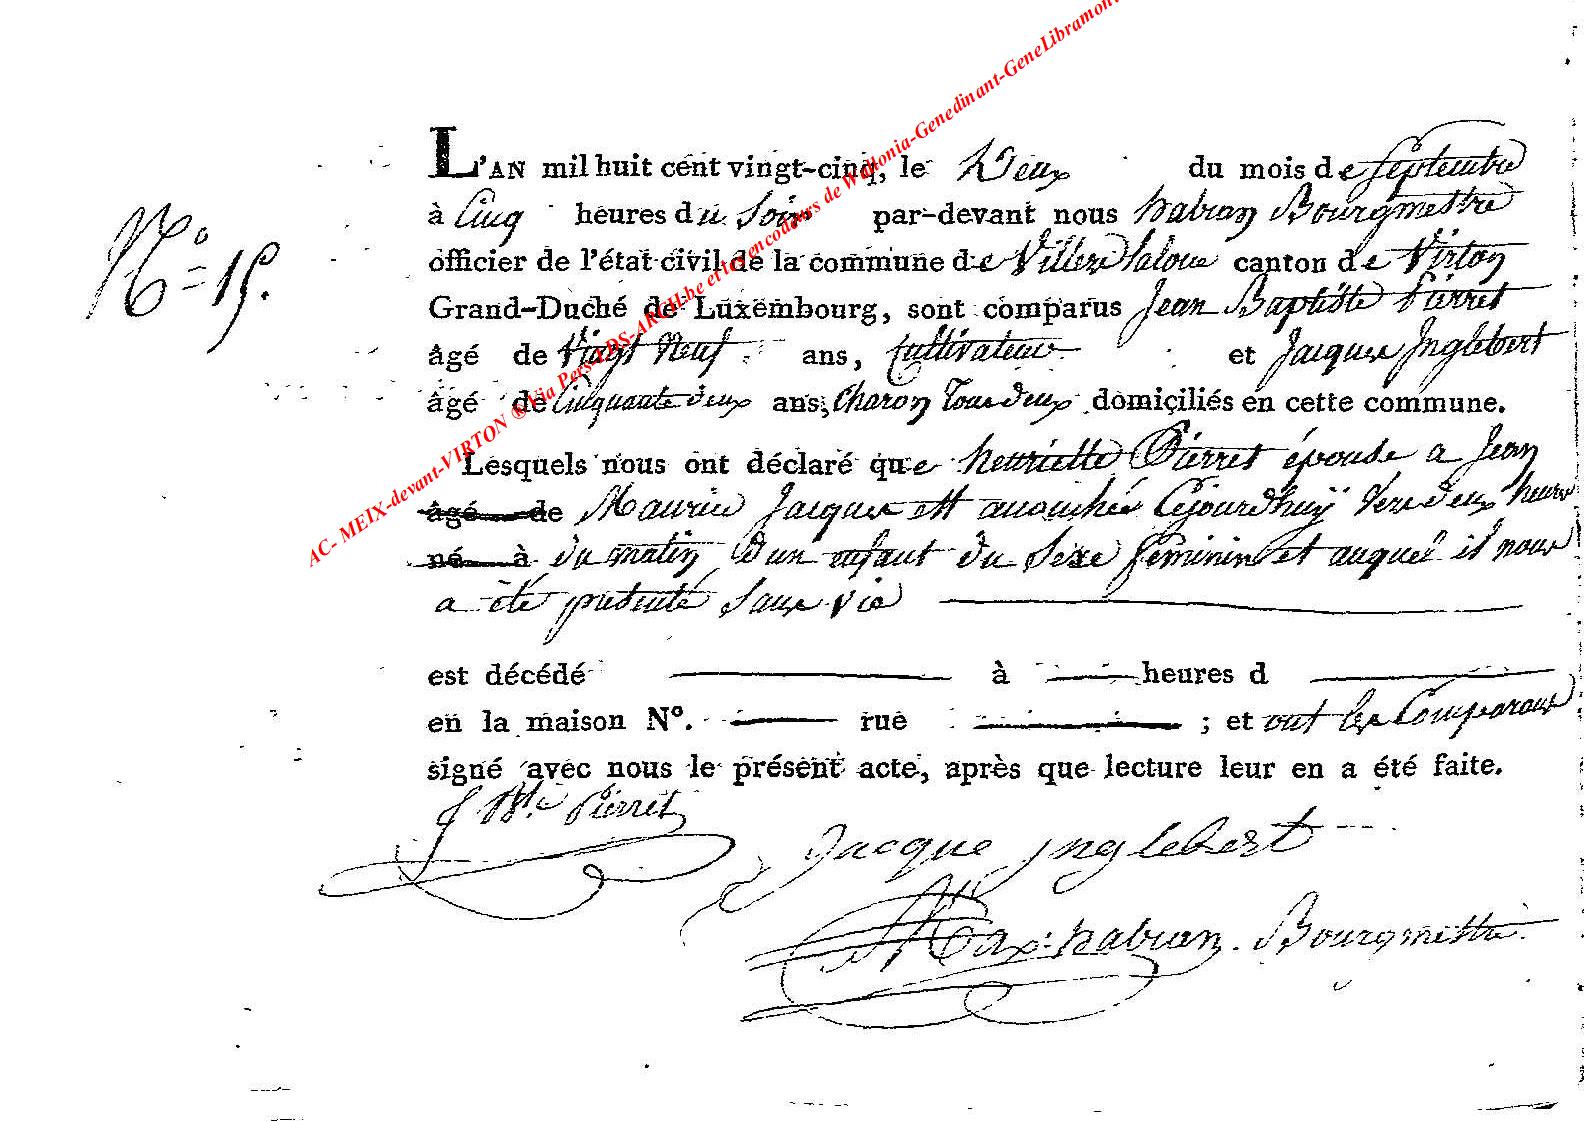 AC- MEIX-devant-VIRTON ® Via PersADS-ARCH.be et les encodeurs de Wallonia-Genedinant-GeneLibramont
N° = 15.
L'AN mil huit cent vingt-cinq, le Deux du mois de Septembre
à Cinq heures du Soir par-devant nous habran Bourgmestre
officier de l'état civil de la commune de Villers Laloue canton de Virton
Grand-Duché de Luxembourg, sont comparus Jean Baptiste Pierret
âgé de Vingt Neuf ans, Cultivateur et Jacques Inglebert
âgé de Cinquante deux ans, Charon Tous deux domiciliés en cette commune.
Lesquels nous ont déclaré que henriette Pierret épouse a Jean
âgé de Maurice Jacques est accouchée Cejourdhuÿ Vers deux heures
né à du matin d'un enfant du Sexe feminin et auquel il nous
a été présenté Sans vie
est décédé à heures d
en la maison N°. rue ; et ont les Comparans
signé avec nous le présent acte, après que lecture leur en a été faite.
J Bte Pierret
Jacque Inglebert
Max: habran. Bourgmestre.